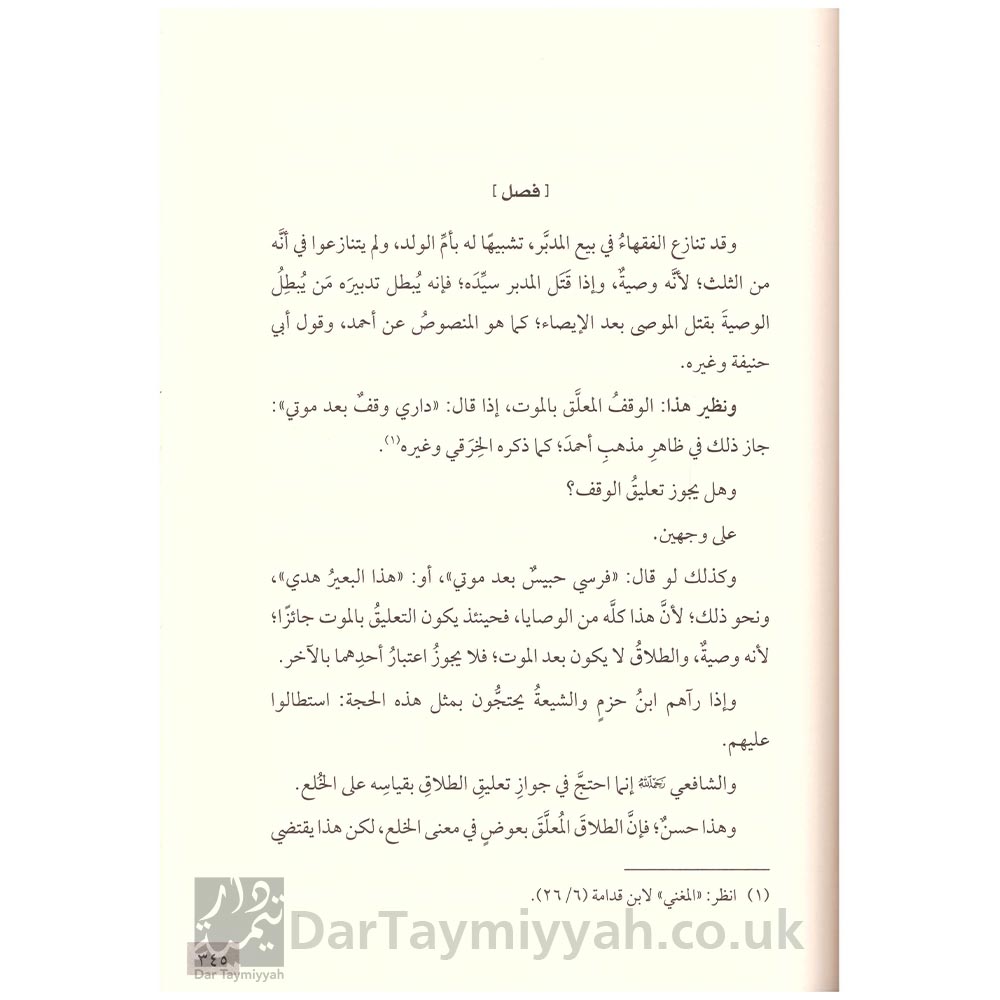 [ فصل ]
وقد تنازع الفقهاءُ في بيع المدبَّر، تشبيهًا له بأمِّ الولد، ولم يتنازعوا في أنَّه
من الثلث؛ لأنَّه وصيةٌ، وإذا قَتَل المدبر سيِّدَه؛ فإنه يُبطل تدبيرَه مَن يُبطِلُ
الوصيةَ بقتل الموصى بعد الإيصاء؛ كما هو المنصوصُ عن أحمد، وقول أبي
حنيفة وغيره.
ونظير هذا: الوقفُ المعلَّق بالموت، إذا قال: «داري وقفٌ بعد موتي»:
جاز ذلك في ظاهرِ مذهبِ أحمدَ؛ كما ذكره الخِرَقي وغيره(١).
وهل يجوز تعليقُ الوقف؟
على وجهين.
وكذلك لو قال: «فرسي حبيسٌ بعد موتي»، أو: «هذا البعيرُ هدي»،
ونحو ذلك؛ لأنَّ هذا كلَّه من الوصايا، فحينئذ يكون التعليقُ بالموت جائزًا؛
لأنه وصيةٌ، والطلاقُ لا يكون بعد الموت؛ فلا يجوزُ اعتبارُ أحدِهما بالآخر.
وإذا رآهم ابنُ حزمٍ والشيعةُ يحتجُّون بمثل هذه الحجة: استطالوا
عليهم.
والشافعي رَحِمَهُ ٱللَّهُ إنما احتجَّ في جوازِ تعليقِ الطلاقِ بقياسِه على الخُلع.
وهذا حسنٌ؛ فإنَّ الطلاقَ المُعلَّقَ بعوضٍ في معنى الخلع، لكن هذا يقتضي
(١) انظر: «المغني» لابن قدامة (٦/ ٢٦).
دار تيمية
DarTaymiyyah.co.uk
٣٤٥
Dar Taymiyyah